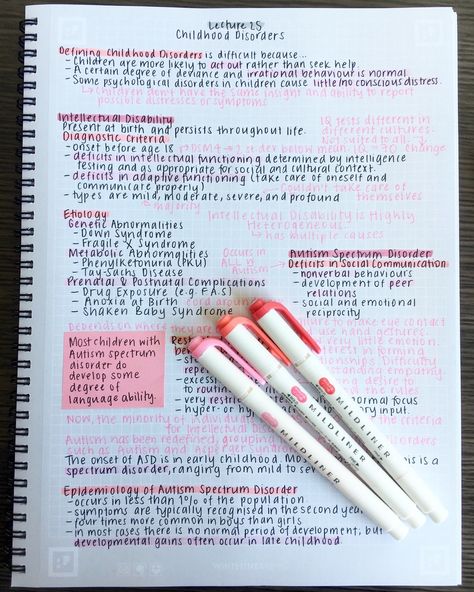 Lecture 25
Childhood Disorders
Defining Childhood Disorders is difficult because...
- Children are more likely to act out rather than seek help.
- A certain degree of deviance and irrational behaviour is normal.
- Some psychological disorders in children cause little/no conscious distress.
children don't have the same insight and ability to report
possible distresses or symptoms
Intellectual Disability
Present at birth and persists throughout life.
IQ tests differ in
different cultures.
Not suited to all →
Diagnostic Criteria
- onset before age 18 → DSM4 → 2 st dev below mean. IQ = 70 change
- deficits in intellectual functioning determined by intelligence
testing and as appropriate for social and cultural context.
- deficits in adaptive functioning (take care of oneself and
communicate properly)
Couldn't take care of
themselves
- types are mild, moderate, severe, and profound
majority
Etiology
Intellectual Disability is Highly
Heterogeneous.
↳ has multiple causes
Genetic Abnormalities
- Down Syndrome
- Fragile X Syndrome
Metabolic Abnormalities
- Phenylketonuria (PKU)
- Tay-Sachs Disease
Prenatal & Postnatal Complications
- Drug Exposure (e.g. FAS)
- Anoxia at Birth cord around
- Shaken Baby Syndrome
Occurs in
ALL in
Autism
Autism Spectrum Disorder
Deficits in Social Communication
- nonverbal behaviours
- development of peer
relations
- social and emotional
reciprocity
Depends on where they are
make eye contact
use hand gestures.
very little emotion.
in forming
Difficulty
understanding empathy.
Most children with
Autism spectrum
disorder do
develop some
degree of
language ability.
Rest
be
- st
repe
- excess
to routin
desire to
the rules
- very restri
normal focus
- hyper- or hy
ory input.
Now, the minority of individuals
the criteria
for Intellectual Disab
Autism has been redefined, grouping
disorders
such as Autism and Asperger Syndrome
The onset of ASD is in early childhood. Mo
is a
spectrum disorder, ranging from mild to seve
Epidemiology of Autism Spectrum Disorder
- occurs in less than 1% of the population
- symptoms are typically recognised in the second year
- four times more common in boys than girls
- in most cases there is no normal period of development, but
developmental gains often occur in late childhood.
MILDLINER
MILDLINER
MILDLINER